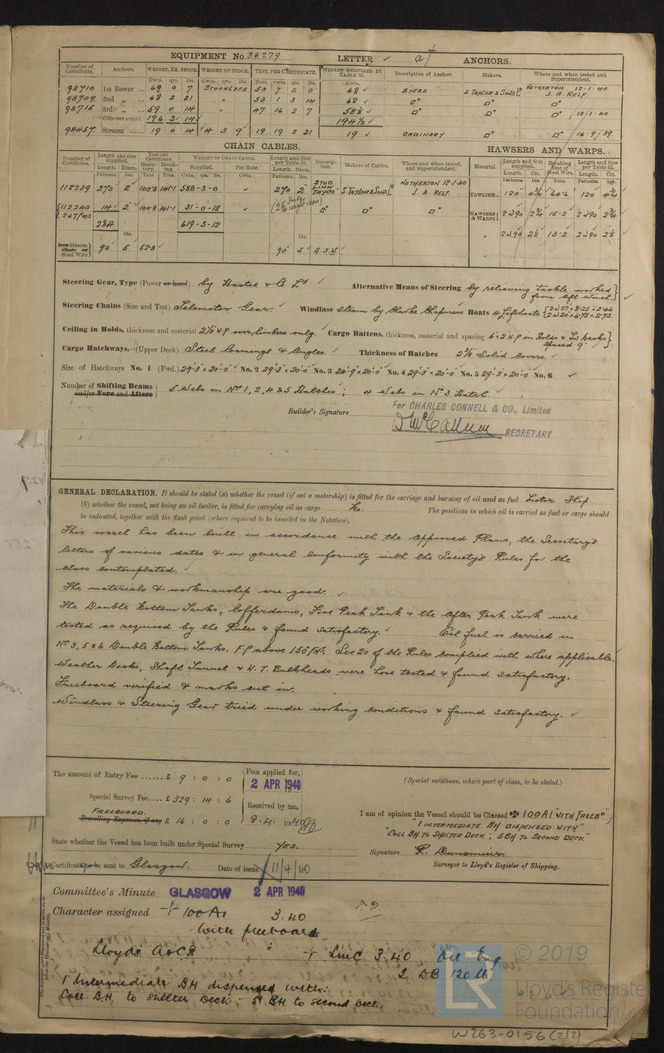 EQUIPMENT No 38279 LETTER a† ANCHORS.
Number of Certificate. Anchors. WEIGHT, EX. STOCK WEIGHT OF STOCK. TEST, PER CERTIFICATE. WEIGHT REQUIRED BY TABLE 53. Description of Anchor. Makers. Where and when tested and Superintendent.
Cwts. qrs. lbs. Cwts. qrs. lbs. Tons. cwts. qrs. lbs. Cwts.
98710 1st Bower 69 0 7 STOCKLESS 53 7 2 0 68 BYERS S. TAYLOR & SONS LD NETHERTON 12-1-40 J.A. RELF.
98709 2nd " 68 2 21 " 53 1 3 14 68 Do Do Do
98715 3rd " 59 0 14 " 47 16 2 7 58½ Do Do Do 13/1-40
Collective weight 196 3 14 194½
98457 Stream 19 0 14 4 3 9 19 19 2 21 19 ORDINARY Do Do 16-9/39
CHAIN CABLES. HAWSERS AND WARPS.
Number of Certificate. Length and size supplied. Test per Certificate. WEIGHT OF CHAIN CABLE. Length and size per Table 53. Description. Makers of Cables. Where and when tested, and Superintendent. Material. Length and Size supplied. Breaking Test of Steel Wire. Length and Size per Table 53.
112239 270 2 100.8 141.1 588-3-0 270 2 STUD LINK TAYCO S. TAYLOR & SONS LD NETHERTON 12-1-40 J.A. RELF. TOWLINE
112240 14 2 100.8 141.1 31-0-12 Do Do Do HAWSERS & WARPS 2@90 2¾ 15.2 2@90 2¾
284 619-3-12 " 2@90 2½ 13.2 2@90 2½
Steel Wire 90 5 90 5
Steering Gear, Type (Power or hand) by Hastie & Co Ld Alternative Means of Steering by relieving tackle worked from aft winch
Steering Chains (Size and Test) Telemotor Gear. Windlass Steam by Clarke Chapman Boats 4 Lifeboats
Ceiling in Holds, thickness and material 2½ W.P. over limbers only. Cargo Battens, thickness, material and spacing 6 x 2 W.P. in Holds & Tw. Decks spaced 9"
Cargo Hatchways.—(Upper Deck) Steel Coamings & Angles. Thickness of Hatches 2½ Solid Covers.
Size of Hatchways No. 1 (Fwd.) 29-3 x 20-0 No. 2 29-3 x 20-0 No. 3 No. 4 29-3 x 20-0 No. 5 29-3 x 20-0 No. 6
Number of Shifting Beams and/or Fore and Afters 5 Webs in Nos 1, 2, 4 & 5 Hatches; 4 Webs in No 3 Hatch
Builder's Signature For CHARLES CONNELL & CO., Limited
D McCallum SECRETARY
GENERAL DECLARATION. It should be stated (a) whether the vessel (if not a motorship) is fitted for the carriage and burning of oil used as fuel Sister Ship
(b) whether the vessel, not being an oil tanker, is fitted for carrying oil as cargo No. The positions in which oil is carried as fuel or cargo should
be indicated, together with the flash point (where required to be inserted in the Notation).
This vessel has been built in accordance with the approved Plans, the Secretary's
letters of various dates & in general conformity with the Society's Rules for the
class contemplated.
The materials & workmanship are good.
The Double Bottom Tanks, Cofferdams, Fore Peak Tank & the After Peak Tank were
tested as required by the Rules & found satisfactory. Oil fuel is carried in
Nos 3, 5 & 6 Double Bottom Tanks. F.P. above 150°F. Sec 20 of the Rules complied with where applicable.
Weather Decks, Shaft Tunnel & W.T. Bulkheads were hose tested & found satisfactory.
Freeboard verified & marks cut in.
Windlass & Steering Gear tried under working conditions & found satisfactory.
The amount of Entry Fee ...... £ 9 : 0 : 0 Fees applied for, 2 APR 1940 (Special notations, where part of class, to be stated.)
Special Survey Fee... £ 329 : 14 : 6 Received by me,
FREEBOARD
Travelling Expenses, if any £ 16 : 0 : 0 8.4. 1940
I am of opinion the Vessel should be Classed ✠ 100A1 "WITH FREEBD"
"1 INTERMEDIATE BH DISPENSED WITH"
"COLL BH TO SHELTER DECK; 5 BH TO SECOND DECK"
State whether the Vessel has been built under Special Survey Yes. Signature
Certificate to be sent to Glasgow. Date of issue 11/4/40 Surveyor to Lloyd's Register of Shipping.
Committee's Minute GLASGOW 2 APR 1940
Character assigned + 100A1 3.40
with freeboard
Lloyds A&CP + LMC 3.40 Oil Eng
2 DB 120 lb
1 Intermediate BH dispensed with:
Coll. B.H. to Shelter Deck - 5 BH to Second Deck.
© 2019
LR
Lloyd's Register
Foundation
W263-0156 (2/2)